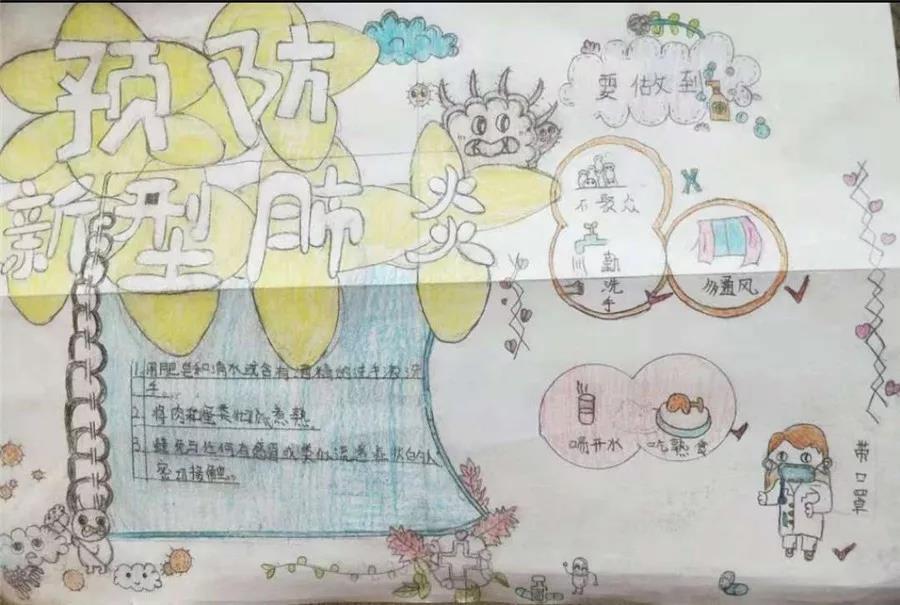 预防
新型肺炎
要做到
不聚众
勤洗手
易通风
1.用肥皂和清水或含有酒精的洗手液洗
手。
2、将肉和蛋类彻底煮熟
3、避免与任何有感冒或类似流感症状的人
密切接触。
喝开水
吃熟食
带口罩